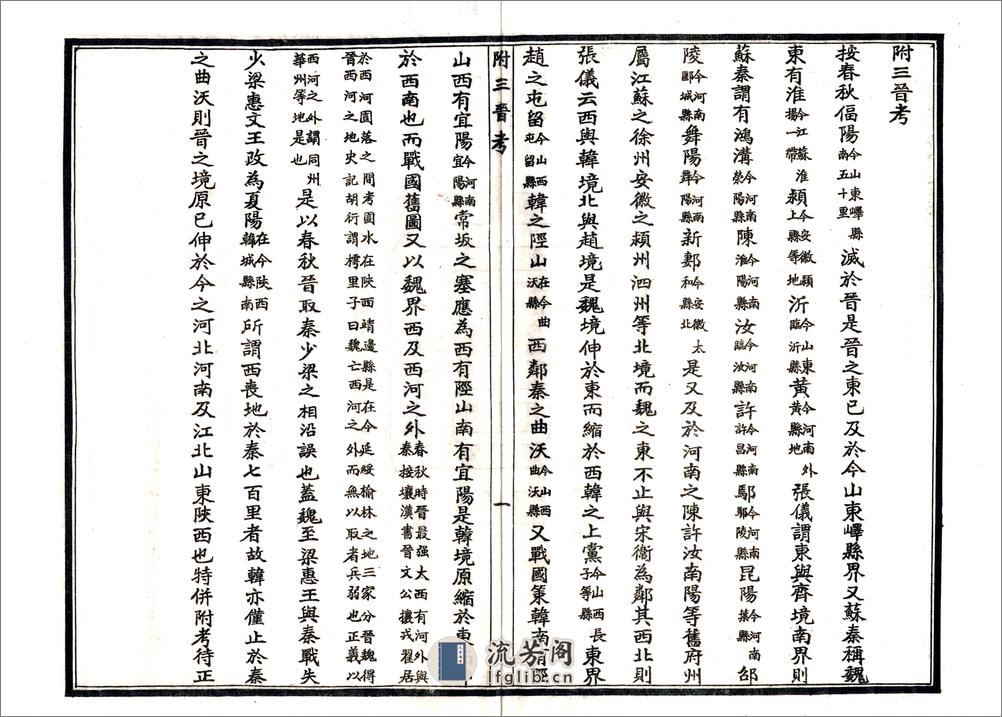 附三晉考
按春秋偪陽今山東嶧縣南五十里滅於晉是晉之東已及於今山東嶧縣界又蘇秦稱魏
東有淮今江蘇淮揚一帶潁今安徽潁上縣等地沂今山東臨沂縣黃今河南外黃縣地張儀謂東與齊境南界則
蘇秦謂有鴻溝今河南滎陽縣陳今河南淮陽縣汝今河南臨汝縣許今河南許昌縣鄢今河南鄢陵縣昆陽今河南葉縣邵
陵今河南郾城縣舞陽今河南舞陽縣新郪今安徽太和縣北是又及於河南之陳許汝南陽等舊府州
屬江蘇之徐州安徽之潁州泗州等北境而魏之東不止與宋衛為鄰其西北則
張儀云西與韓境北與趙境是魏境伸於東而縮於西韓之上黨今山西長子等縣東界
趙之屯留今山西屯留縣韓之陘山在今曲沃縣西鄰秦之曲沃今山西曲沃縣又戰國策韓南有陘
附三晉考
一
山西有宜陽今河南宜陽縣常坂之塞應為西有陘山南有宜陽是韓境原縮於東
於西南也而戰國舊圖又以魏界西及西河之外春秋時晉最强大西有河外與秦接壤漢書晉文公攘戎翟居
於西河圁落之間考圁水在陝西靖邊縣是在今延綏榆林之地三家分晉魏得晉西河之地史記胡衍謂樗里子曰魏亡西河之外而無以取者兵弱也正義以
西河之外謂同州華州等地是也是以春秋晉取秦少梁之相沿誤也蓋魏至梁惠王與秦戰失
少梁惠文王政為夏陽在今陝西韓城縣南所謂西喪地於秦七百里者故韓亦僅止於秦
之曲沃則晉之境原已伸於今之河北河南及江北山東陝西也特併附考待正
流芳阁
lfglib.cn